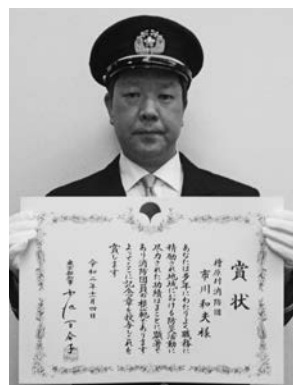 賞状
檜原村消防団
市川和夫様
あなたは多年にわたりよく職務に
精励され地域における防災活動に
尽力された功績はまことに顕著で
あり消防団員の模範であります
よってここに記念章を授与しこれを
賞します
令和二年十一月四日
東京都知事 小池百合子